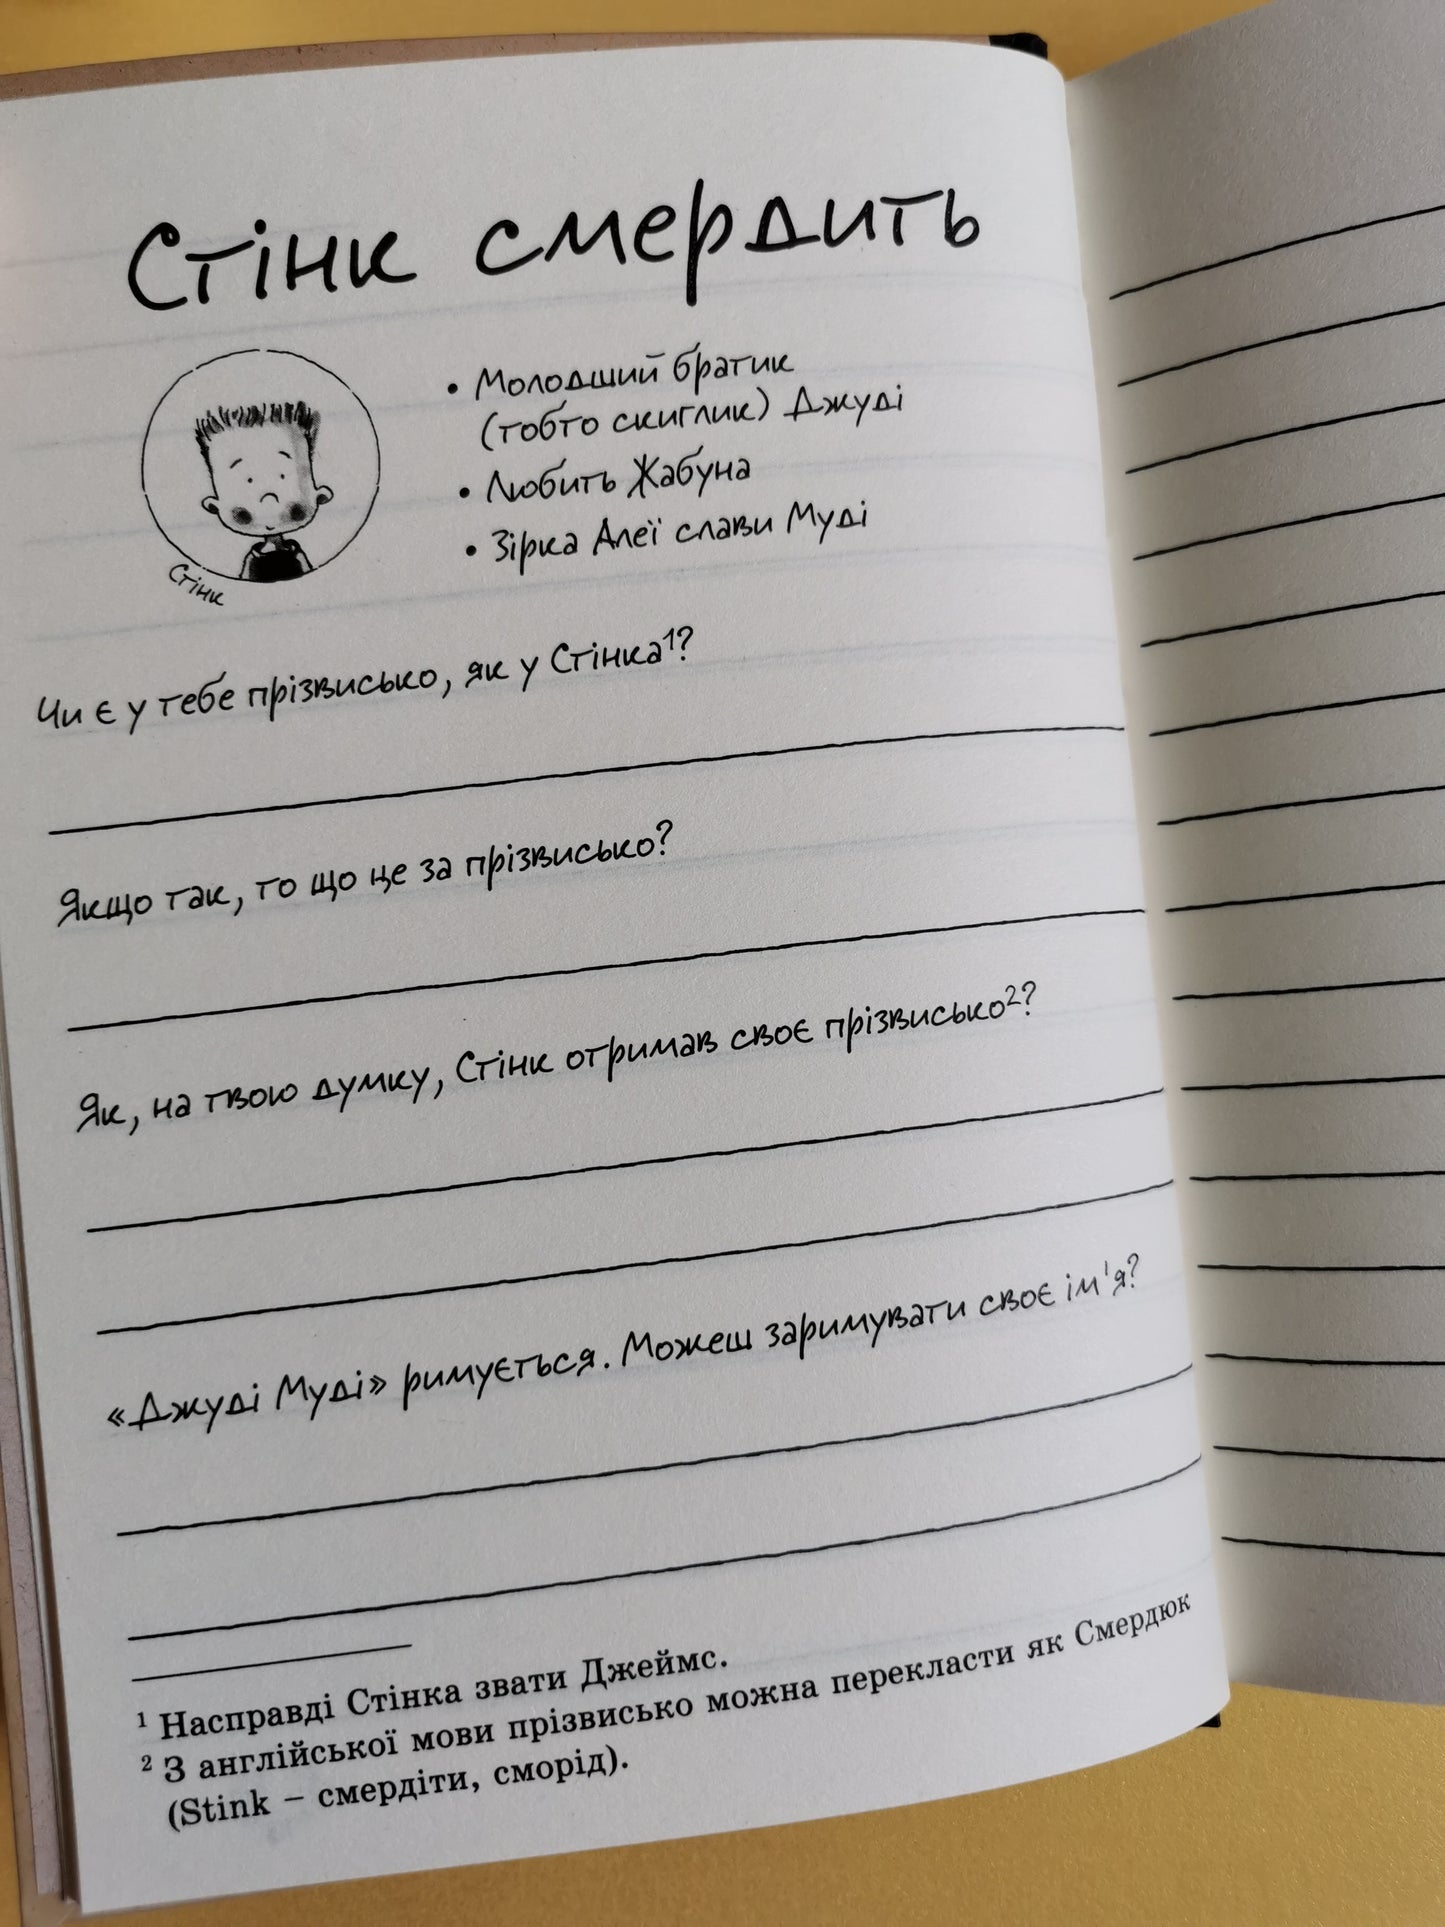 Стінк смердить
• Молодший братик
(тобто скиглик) Джуді
• Любить Жабуна
• Зірка Алеї слави Муді
Стінк
Чи є у тебе прізвисько, як у Стінка¹?
Якщо так, то що це за прізвисько?
Як, на твою думку, Стінк отримав своє прізвисько²?
«Джуді Муді» римується. Можеш заримувати своє ім'я?
¹ Насправді Стінка звати Джеймс.
² З англійської мови прізвисько можна перекласти як Смердюк
(Stink – смердіти, сморід).